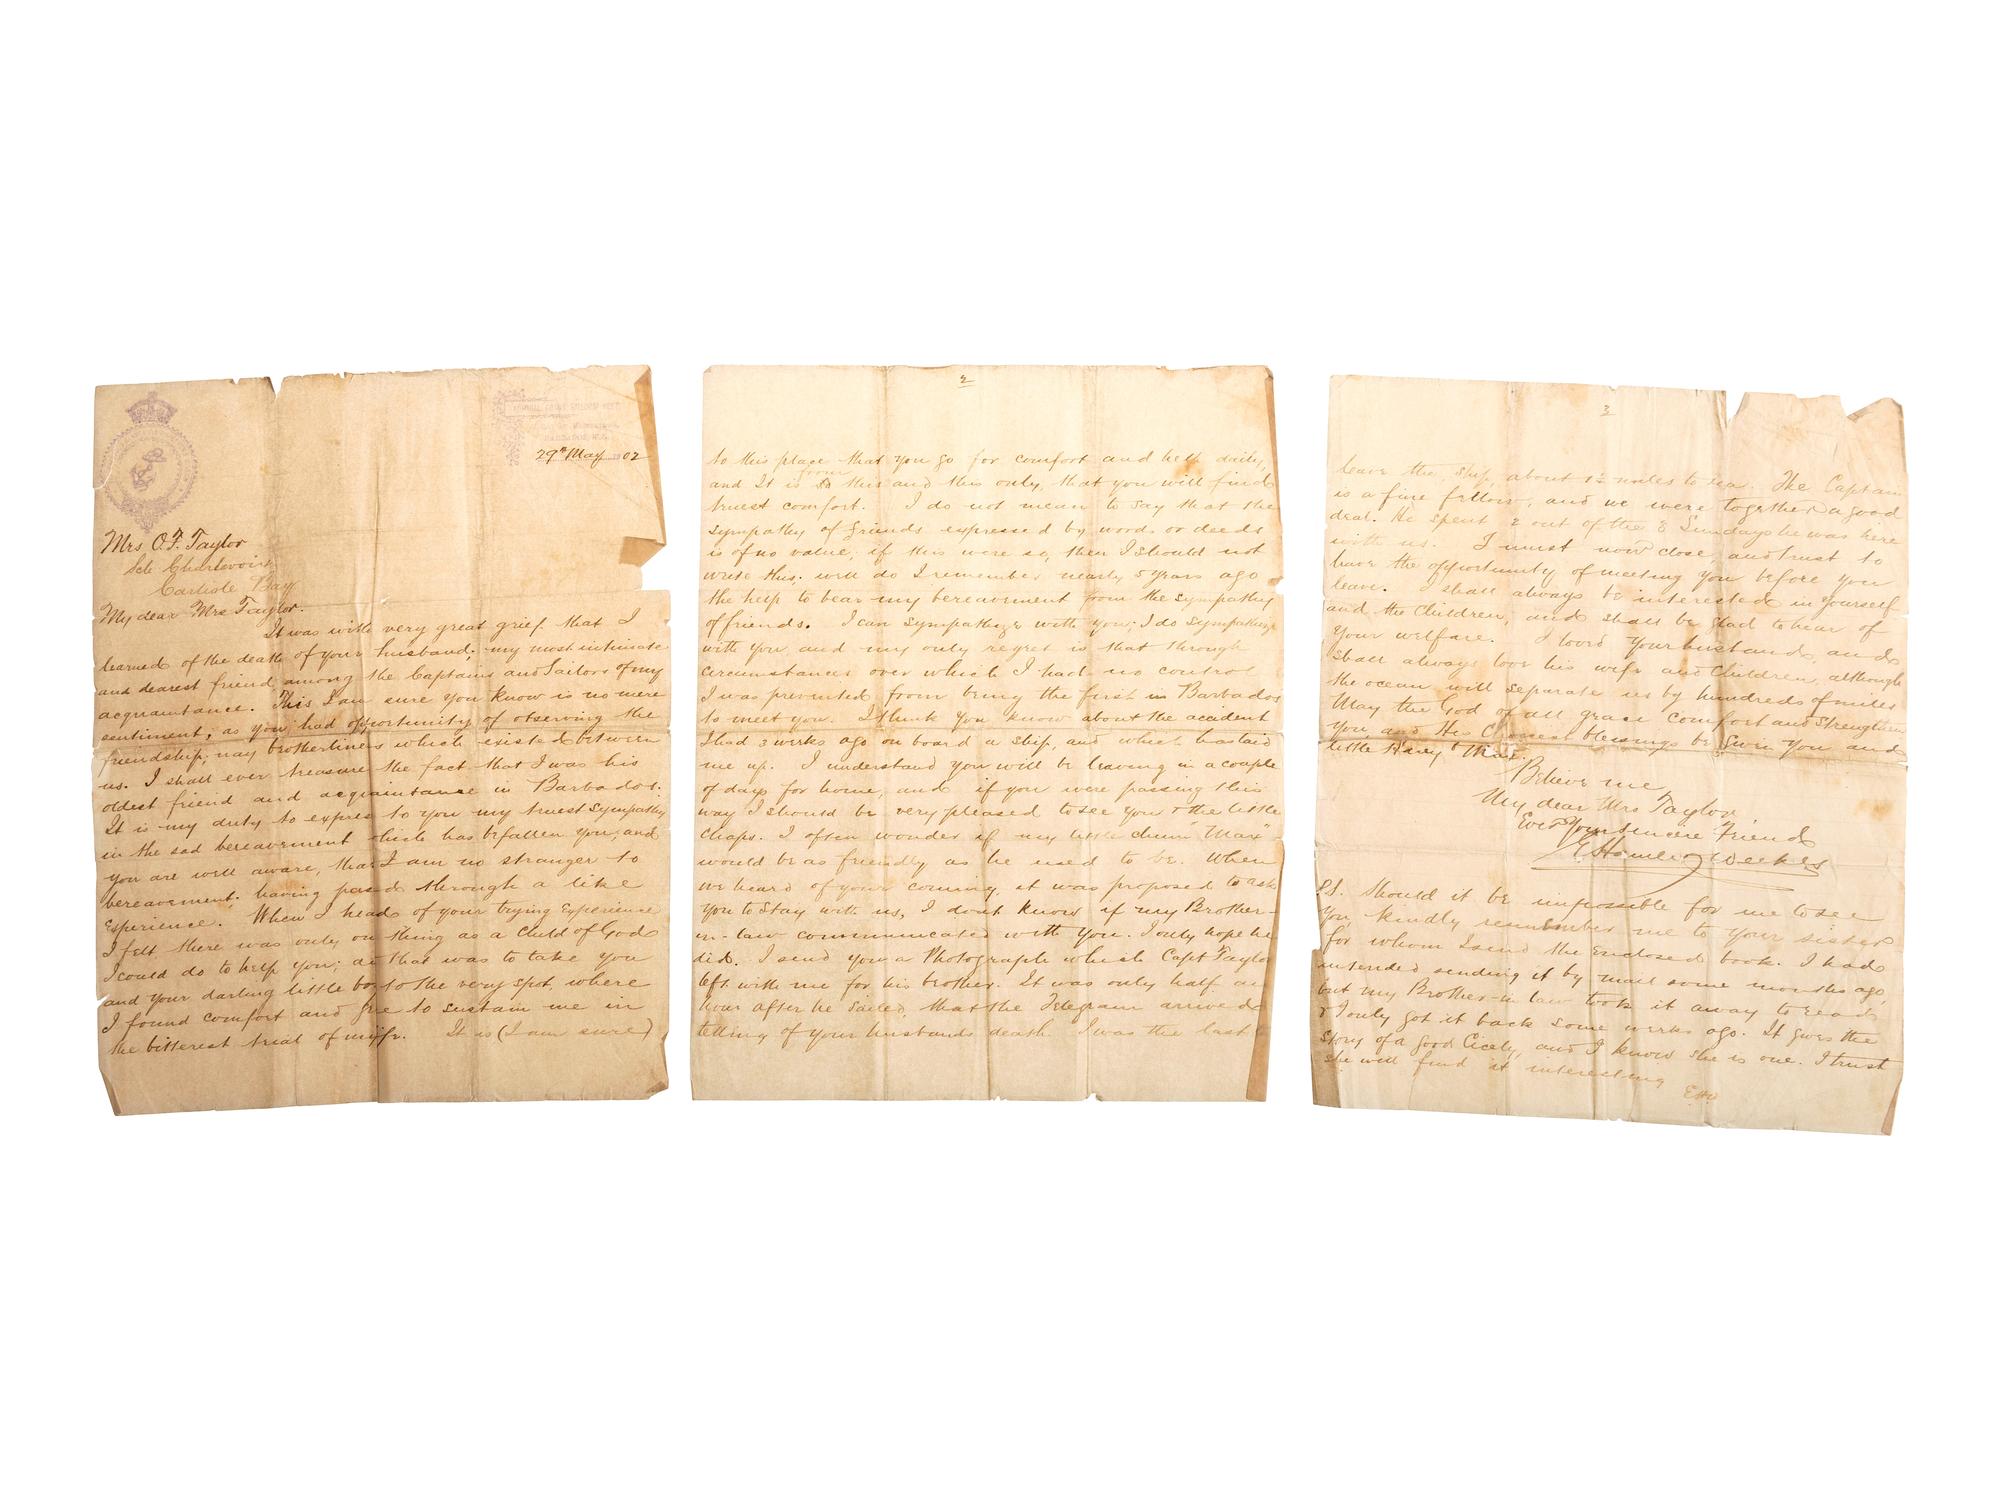 29th May 02
Mrs O.F. Taylor
Sch Charlevoix
Carlisle Bay
My dear Mrs Taylor.
It was with very great grief that I
learned of the death of your husband; my most intimate
and dearest friend among the Captains and Sailors of my
acquaintance. This I am sure you know is no mere
sentiment, as you had opportunity of observing the
friendship, nay brotherliness which existed between
us. I shall ever treasure the fact that I was his
oldest friend and acquaintance in Barbados.
It is my duty to express to you my truest sympathy
in the sad bereavement which has befallen you, and
you are well aware, that I am no stranger to
bereavement. having passed through a like
Experience. When I heard of your trying Experience
I felt there was only one thing as a Child of God
I could do to help you; and that was to take you
and your darling little boy to the very spot, where
I found comfort and grace to sustain me in
the bitterest trial of my life. It is (I am sure)
2
to this place that you go for comfort and help daily,
and It is from this and this only, that you will find
truest comfort. I do not mean to say that the
sympathy of friends expressed by words or deeds
is of no value; if this were so, then I should not
write this. well do I remember nearly 5 years ago
the help to bear my bereavement from the sympathy
of friends. I can sympathize with you; I do sympathize
with you, and my only regret is that through
circumstances over which I had no control
I was prevented from being the first in Barbados
to meet you. I think you know about the accident
I had 3 weeks ago on board a ship, and which has laid
me up. I understand you will be leaving in a couple
of days for home, and if you were passing this
way I should be very pleased to see you & the little
chaps. I often wonder if my little chum "Max"
would be as friendly as he used to be. When
we heard of your coming, it was proposed to ask
you to Stay with us, I dont know if my Brother-
in-law communicated with you. I only hope he
did. I send you a Photograph which Capt Taylor
left with me for his brother. It was only half an
hour after he sailed, that the Telegram arrived
telling of your husbands death. I was the last to
3
leave the ship, about 1½ miles to sea. The Captain
is a fine fellow, and we were together a good
deal. He spent 2 out of the 3 Sundays he was here
with us. I must now close, and trust to
have the opportunity of meeting you before you
leave. I shall always be interested in yourself
and the Children, and shall be glad to hear of
your welfare. I loved your husband, and
shall always love his wife and Children, although
the ocean will separate us by hundreds of miles
May the God of all grace comfort and strengthen
you, and His Choicest blessings be given you and
little Harry & Max.
Believe me
My dear Mrs Taylor
Ever Your sincere Friend
Weekes
P.S. Should it be impossible for me to see
you, kindly remember me to your sister
for whom I send the Enclosed book. I had
intended sending it by mail some months ago,
but my Brother-in law took it away to read
& I only got it back some weeks ago. It gives the
story of a good Cicely, and I know she is one. I trust
she will find it interesting